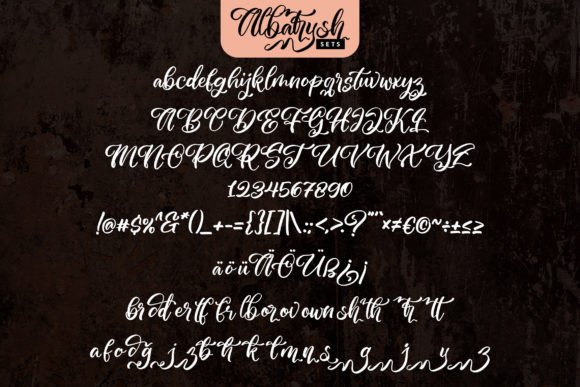 Albatrysh
SETS
abcdefghijklmnopqrstuvwxyz
ABCDEFGHIJKL
MNOPQRSTUVWXYZ
1234567890
!@#$%^&*()_+-={}[]|\:;<,>.?"'`×≠€©~÷±≤≥
äöüÄÖÜß¿¡
br od er ff fr lb or ov ow n sh th
a f o d g j z b h k l m n s g j y z